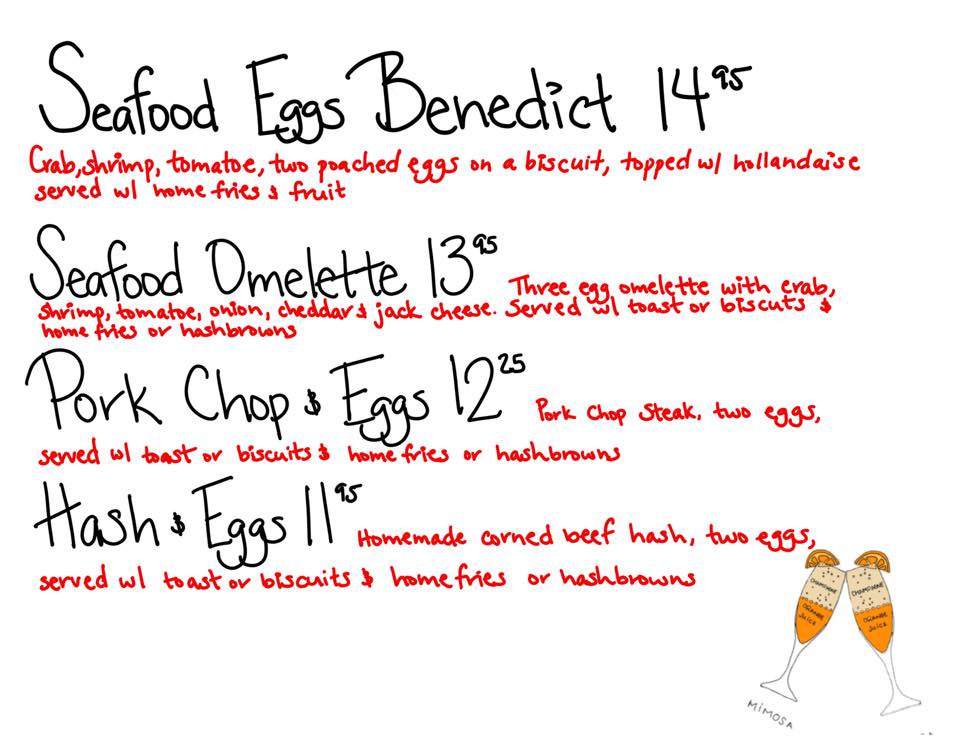 Seafood Eggs Benedict 14 95
Crab, shrimp, tomatoe, two poached eggs on a biscuit, topped w/ hollandaise
served w/ home fries & fruit
Seafood Omelette 13 95 Three egg omelette with crab,
shrimp, tomatoe, onion, cheddar & jack cheese. Served w/ toast or biscuts &
home fries or hashbrowns
Pork Chop & Eggs 12 25 Pork Chop Steak, two eggs,
served w/ toast or biscuits & home fries or hashbrowns
Hash & Eggs 11 95 Homemade corned beef hash, two eggs,
served w/ toast or biscuits & home fries or hashbrowns
CHAMPAGNE
CHAMPAGNE
ORANGE
Juice
ORANGE
Juice
MiMOSA